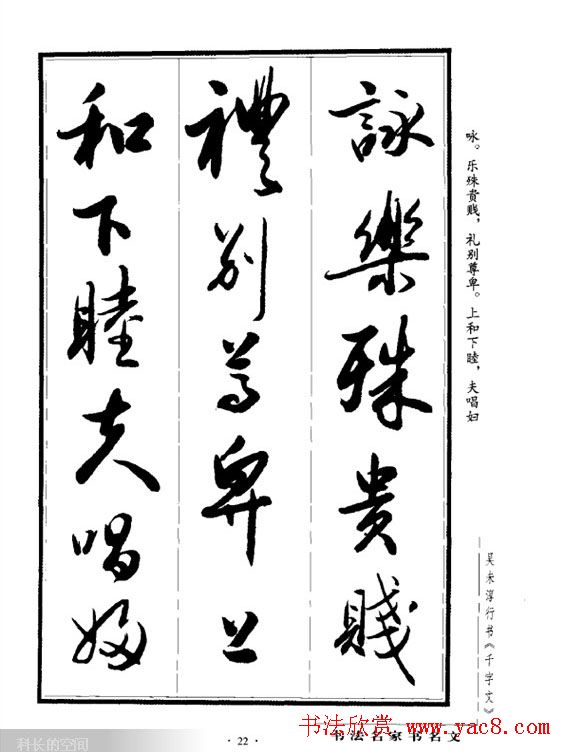 詠樂殊貴賤
禮別尊卑上
和下睦夫唱婦
咏。乐殊贵贱，礼别尊卑。上和下睦，夫唱妇
吴未淳行书《千字文》
·22·
书法名家书名文
书法欣赏 www.yac8.com
科长的空间